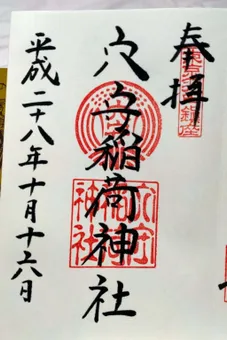 奉拝
穴守稲荷神社
穴守
稲荷
神社
平成二十八年十月十六日